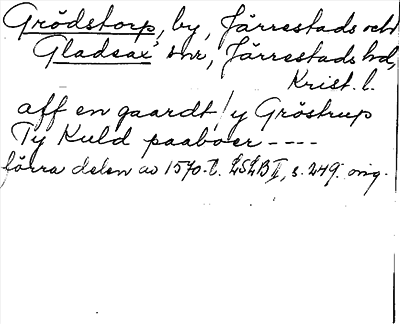 Grödstorp, by, Järrestads och
Gladsax' snr, Järrestads hd,
Krist. l.
aff en gaardt / y Gröstrup
Ty Kuld paaboer ----
förra delen av 1570-t. LSLB II, s. 249. orig.